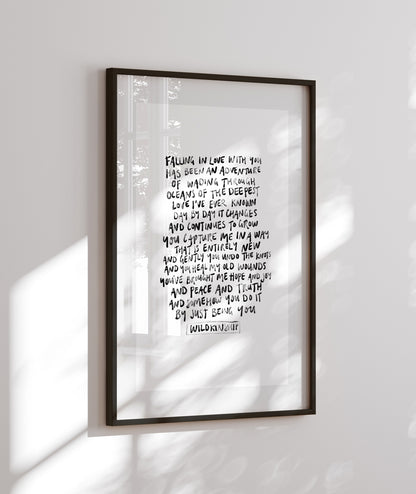 FALLING IN LOVE WITH YOU
HAS BEEN AN ADVENTURE
OF WADING THROUGH
OCEANS OF THE DEEPEST
LOVE I'VE EVER KNOWN
DAY BY DAY IT CHANGES
AND CONTINUES TO GROW
YOU CAPTURE ME IN A WAY
THAT IS ENTIRELY NEW
AND GENTLY YOU UNDO THE KNOTS
AND YOU HEAL MY OLD WOUNDS
YOU'VE BROUGHT ME HOPE AND JOY
AND PEACE AND TRUTH
AND SOMEHOW YOU DO IT
BY JUST BEING YOU